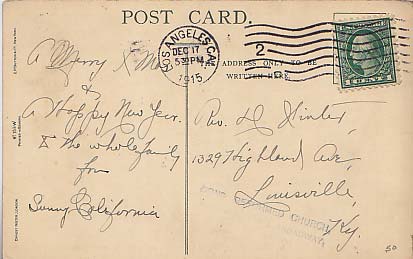 POST CARD.
LOS ANGELES, CAL.
DEC 17
5 30 PM
1915
2
THE ADDRESS ONLY TO BE
WRITTEN HERE.
A Merry X Mas
&
A Happy New Year.
& the whole family
from
Sunny California
Rev. D. Hinter,
1329 Highland Ave,
Louisville,
Ky.
REFORMED CHURCH
BROADWAY
50